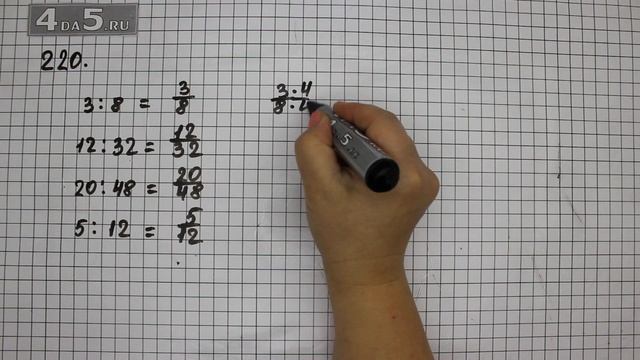 4ДА5.RU
220.
3 : 8 = 3/8
12 : 32 = 12/32
20 : 48 = 20/48
5 : 12 = 5/12
3 · 4
8 · 4